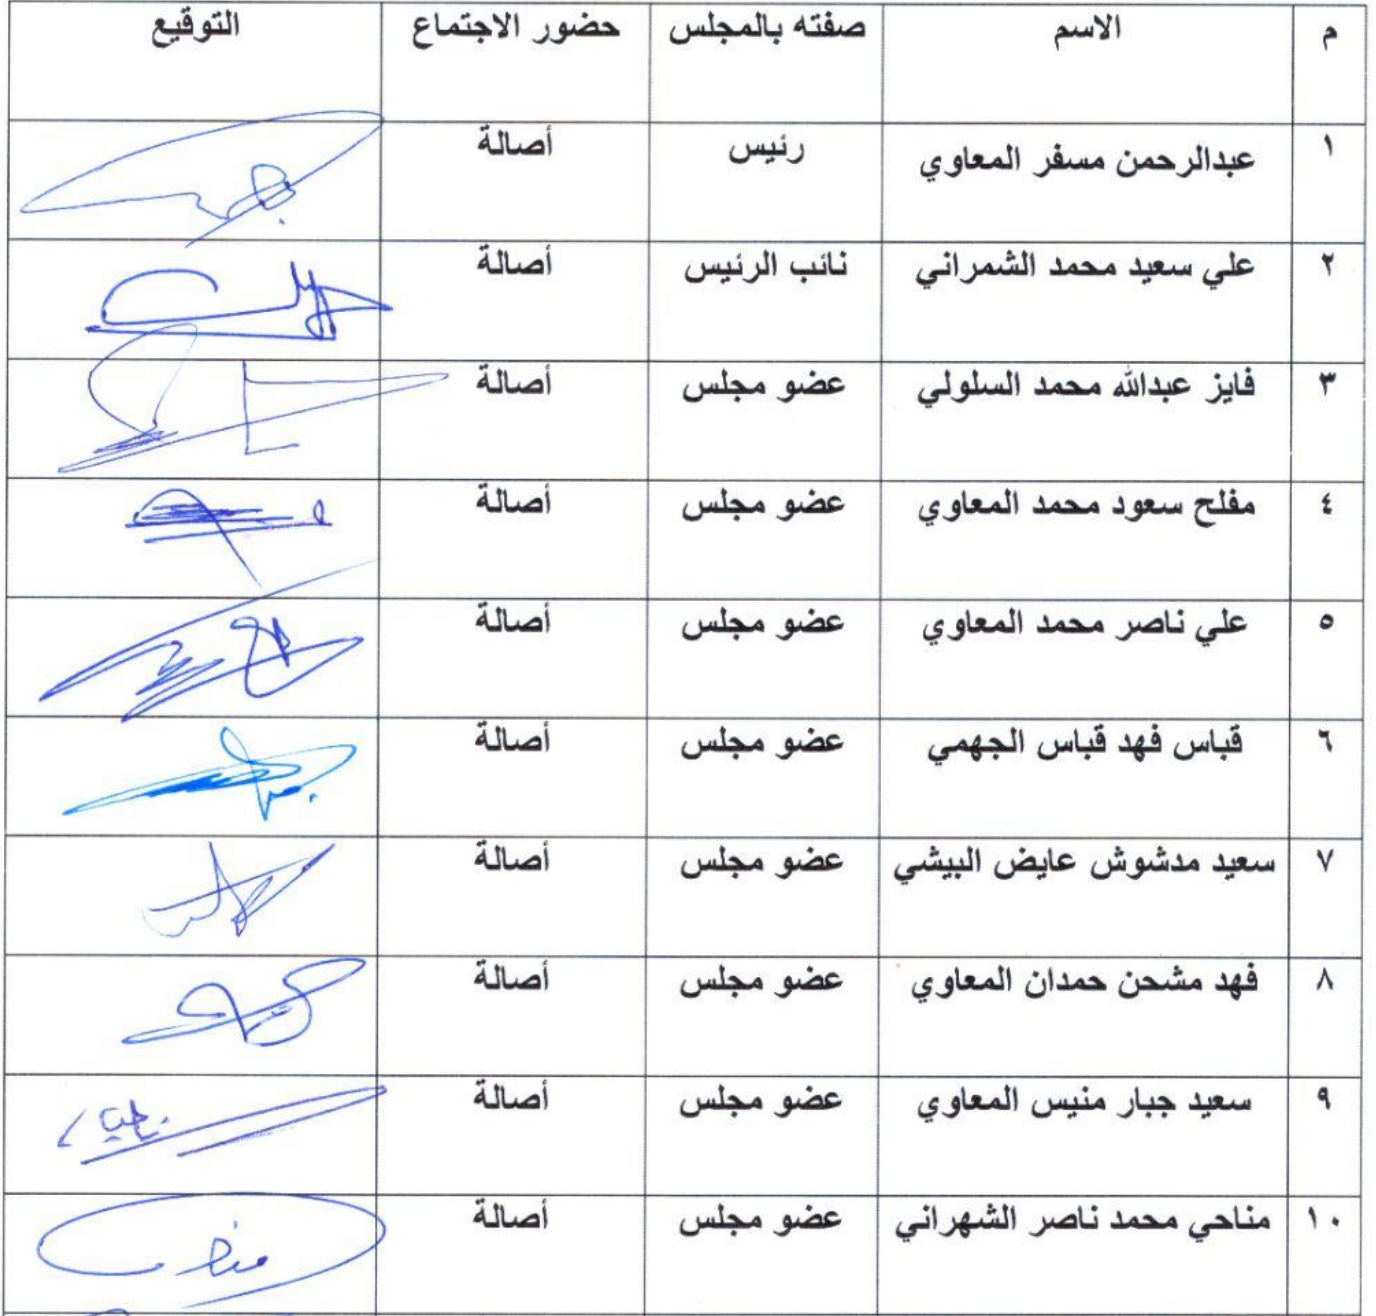 م الاسم صفته بالمجلس حضور الاجتماع التوقيع
١ عبدالرحمن مسفر المعاوي رئيس أصالة
٢ علي سعيد محمد الشمراني نائب الرئيس أصالة
٣ فايز عبدالله محمد السلولي عضو مجلس أصالة
٤ مفلح سعود محمد المعاوي عضو مجلس أصالة
٥ علي ناصر محمد المعاوي عضو مجلس أصالة
٦ قباس فهد قباس الجهمي عضو مجلس أصالة
٧ سعيد مدشوش عايض البيشي عضو مجلس أصالة
٨ فهد مشحن حمدان المعاوي عضو مجلس أصالة
٩ سعيد جبار منيس المعاوي عضو مجلس أصالة
١٠ مناحي محمد ناصر الشهراني عضو مجلس أصالة